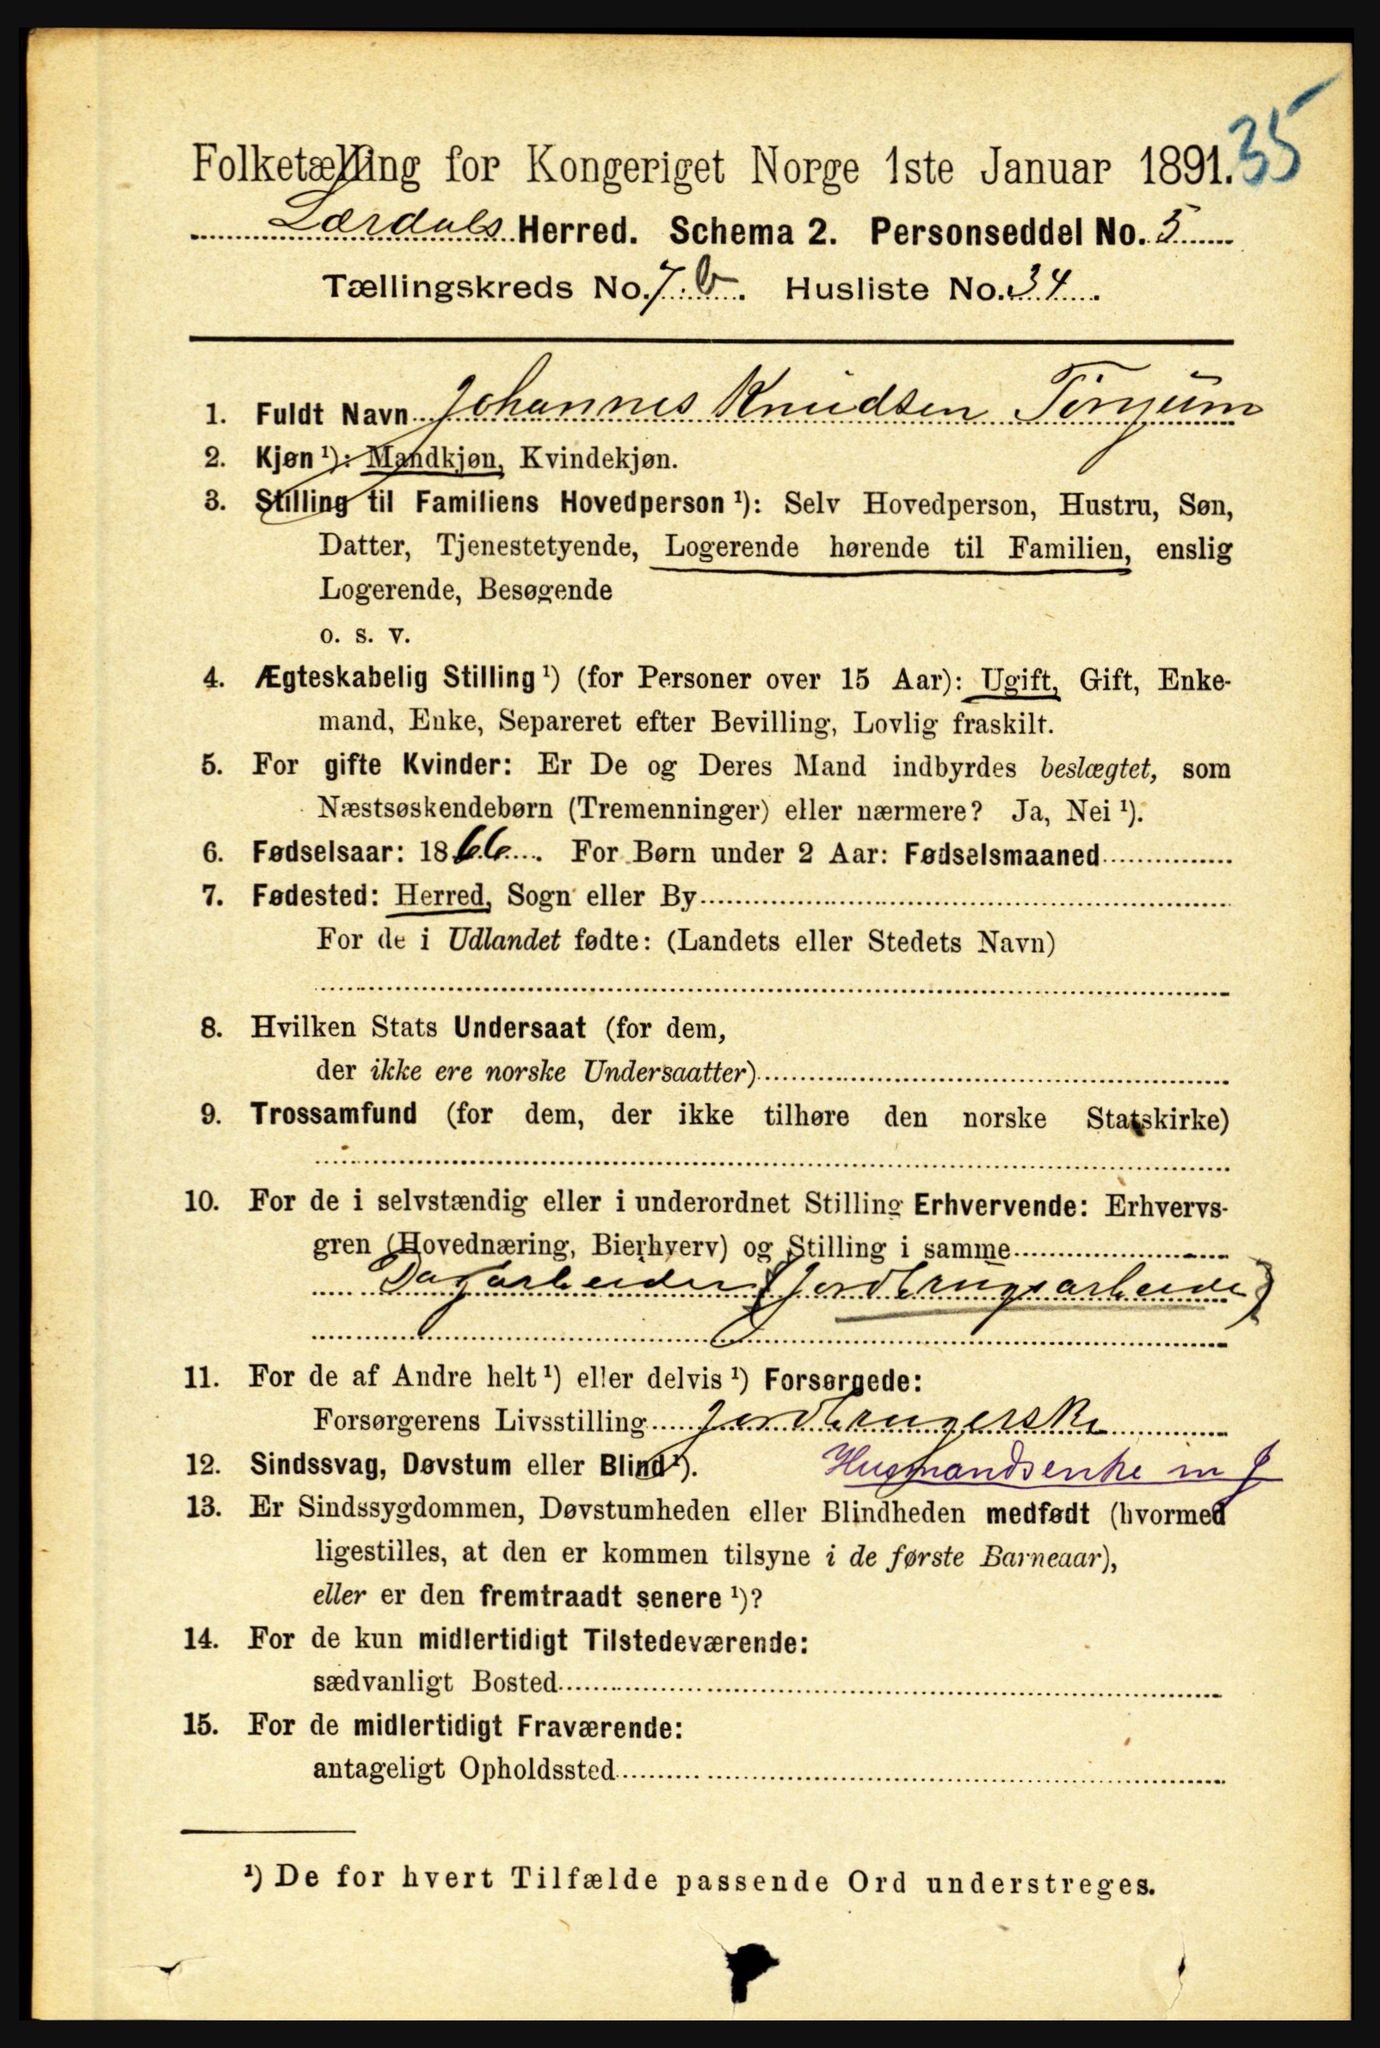 35
Folketælling for Kongeriget Norge 1ste Januar 1891.
Lærdals Herred. Schema 2. Personseddel No. 5
Tællingskreds No. 7 b. Husliste No. 34.
1. Fuldt Navn Johannes Knudsen Tønjum
2. Kjøn ¹): Mandkjøn, Kvindekjøn.
3. Stilling til Familiens Hovedperson ¹): Selv Hovedperson, Hustru, Søn,
Datter, Tjenestetyende, Logerende hørende til Familien, enslig
Logerende, Besøgende
o. s. v.
4. Ægteskabelig Stilling ¹) (for Personer over 15 Aar): Ugift, Gift, Enke-
mand, Enke, Separeret efter Bevilling, Lovlig fraskilt.
5. For gifte Kvinder: Er De og Deres Mand indbyrdes beslægtet, som
Næstsøskendebørn (Tremenninger) eller nærmere? Ja, Nei ¹).
6. Fødselsaar: 1866. For Børn under 2 Aar: Fødselsmaaned
7. Fødested: Herred, Sogn eller By
For de i Udlandet fødte: (Landets eller Stedets Navn)
8. Hvilken Stats Undersaat (for dem,
der ikke ere norske Undersaatter)
9. Trossamfund (for dem, der ikke tilhøre den norske Statskirke)
10. For de i selvstændig eller i underordnet Stilling Erhvervende: Erhvervs-
gren (Hovednæring, Bierhverv) og Stilling i samme
Dagarbeider (Jordbrugsarbeide)
11. For de af Andre helt ¹) eller delvis ¹) Forsørgede:
Forsørgerens Livsstilling Jordbrugerske
12. Sindssvag, Døvstum eller Blind ¹). Husmandsenke m J
13. Er Sindssygdommen, Døvstumheden eller Blindheden medfødt (hvormed
ligestilles, at den er kommen tilsyne i de første Barneaar),
eller er den fremtraadt senere ¹)?
14. For de kun midlertidigt Tilstedeværende:
sædvanligt Bosted
15. For de midlertidigt Fraværende:
antageligt Opholdssted
¹) De for hvert Tilfælde passende Ord understreges.